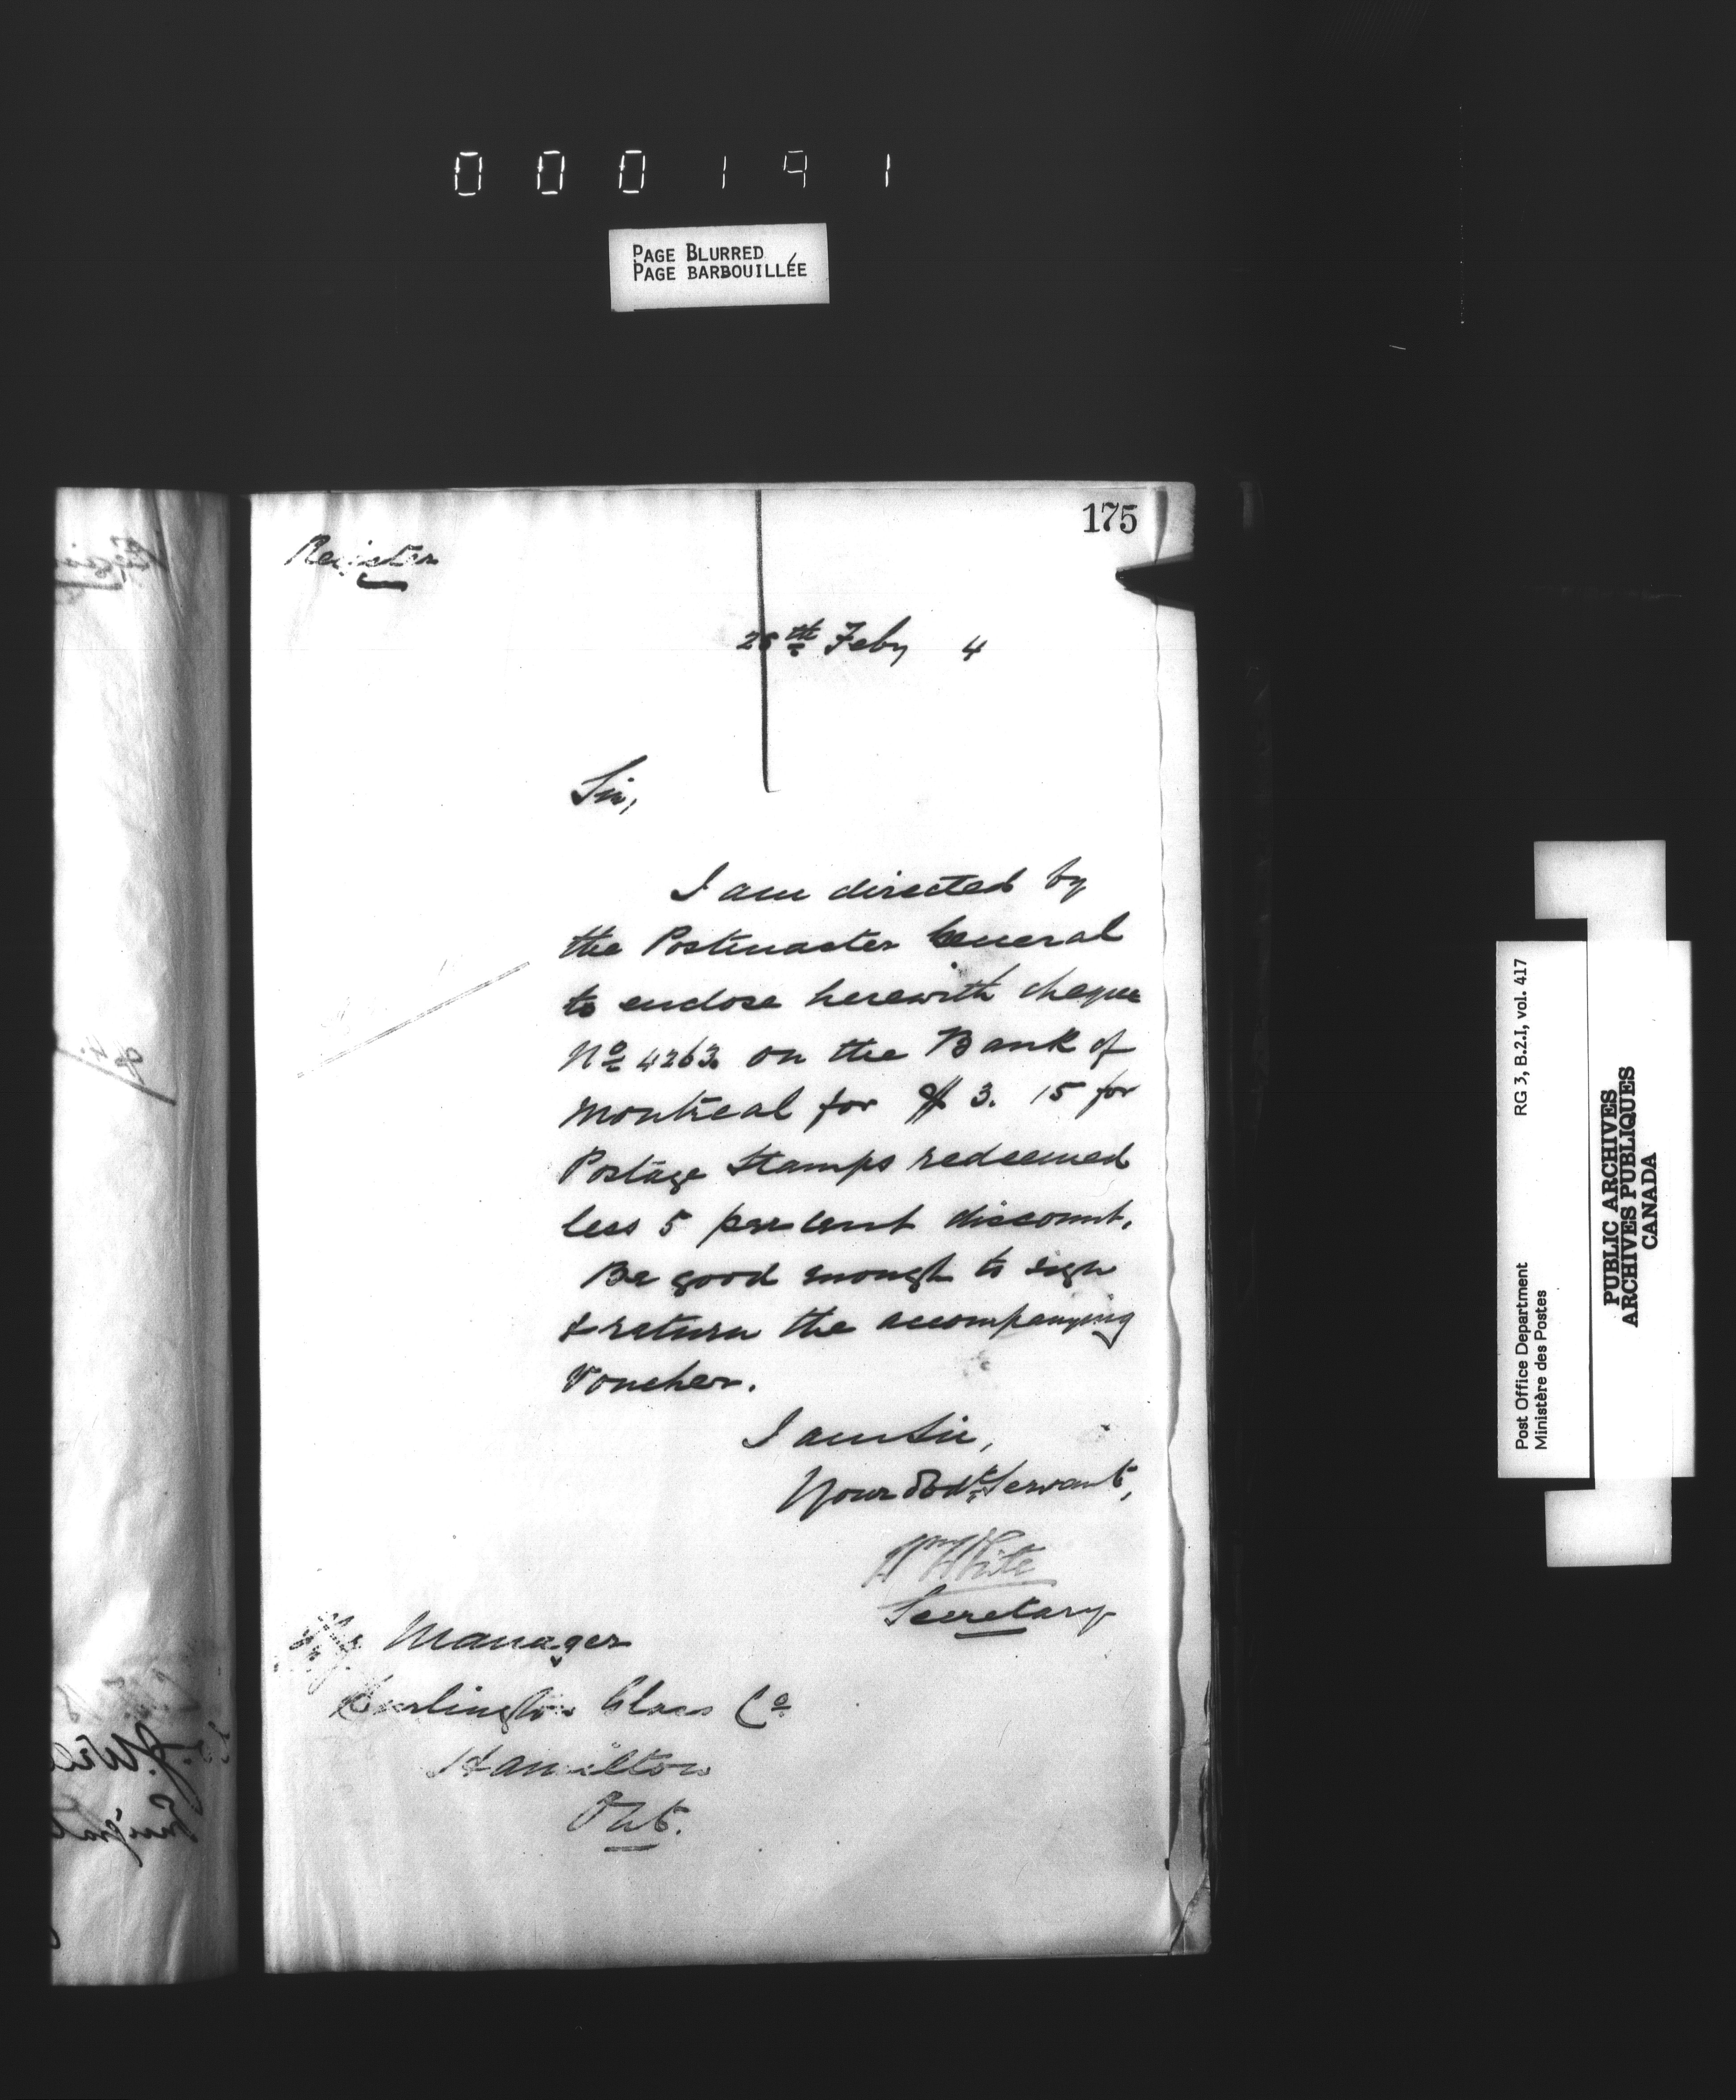 000191
PAGE BLURRED
PAGE BARBOUILLÉE
175
Register
26th Feby 4
Sir,
I am directed by
the Postmaster General
to enclose herewith cheque
No 4263 on the Bank of
Montreal for $ 3. 15 for
Postage Stamps redeemed
less 5 per cent discount.
Be good enough to sign
& return the accompanying
Voucher.
I am Sir,
Your Obdt Servant,
Wm White
Secretary
Manager
Burlington Glass Co
Hamilton
Ont.
RG 3, B.2.I, vol. 417
Post Office Department
Ministère des Postes
PUBLIC ARCHIVES
ARCHIVES PUBLIQUES
CANADA